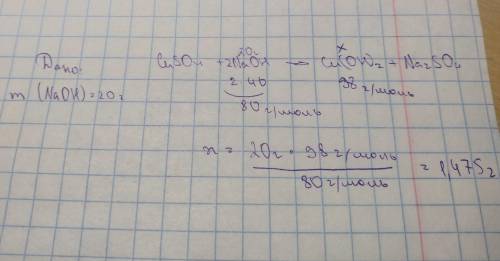 20г x
Дано: CuSO4 + 2NaOH — Cu(OH)2 + Na2SO4
m (NaOH) = 20г 2·40 98 г/моль
80 г/моль
x = 20г · 98 г/моль = 1,475г
80 г/моль